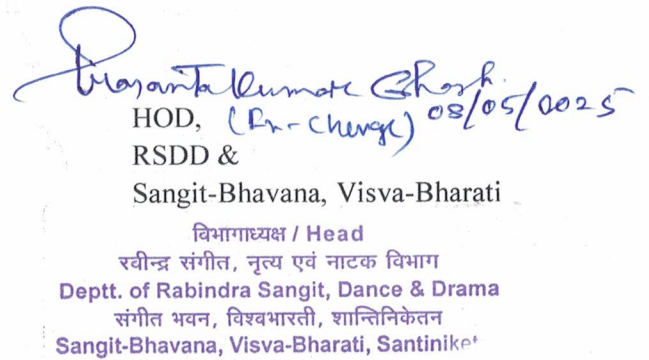 Prasanta Kumar Ghosh.
HOD, (In-Charge) 08/05/2025
RSDD &
Sangit-Bhavana, Visva-Bharati
विभागाध्यक्ष / Head
रवीन्द्र संगीत, नृत्य एवं नाटक विभाग
Deptt. of Rabindra Sangit, Dance & Drama
संगीत भवन, विश्वभारती, शान्तिनिकेतन
Sangit-Bhavana, Visva-Bharati, Santiniket